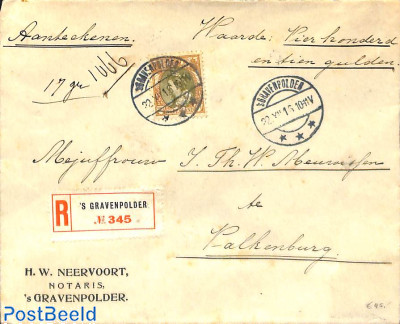 Aanteekenen.
Waarde: Vier honderd
en tien gulden.
17 gr
1666
'SGRAVENPOLDER
'SGRAVENPOLDER
22 XII 15 10-11V
Mejuffrouw J. Th. W. Meuwissen
te
Valkenburg.
R
'S GRAVENPOLDER
№ 345
H. W. NEERVOORT,
NOTARIS,
's GRAVENPOLDER.
PostBeeld